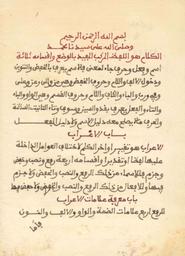 بسم الله الرحمن الرحيم
وصلى الله على سيدنا محمد
الكلام هو اللفظ المركب المفيد بالوضع وأقسامه ثلاثة
اسم وفعل وحرف جاء لمعنى فالاسم يعرف بالخفض والتنوين
ودخول الألف واللام وحروف الخفض وهي من وإلى وعن وعلى
وفي ورب والباء والكاف واللام وحروف القسم وهي الواو والباء
والتاء والفعل يعرف بقد والسين وسوف وتاء التأنيث الساكنة
والحرف ما لا يصلح معه دليل الاسم ولا دليل الفعل
باب الإعراب
الإعراب هو تغيير أواخر الكلم لاختلاف العوامل الداخلة
عليها لفظا أو تقديرا وأقسامه أربعة رفع ونصب وخفض
وجزم فللأسماء من ذلك الرفع والنصب والخفض ولا جزم
فيها وللأفعال من ذلك الرفع والنصب والجزم ولا خفض فيها
باب معرفة علامات الإعراب
للرفع أربع علامات الضمة والواو والألف والنون
فأما